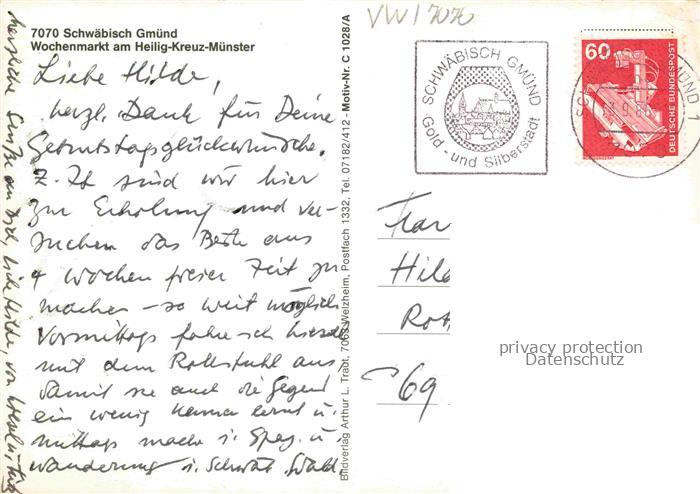 7070 Schwäbisch Gmünd
Wochenmarkt am Heilig-Kreuz-Münster
Liebe Hilde,
herzl. Dank für Deine
Geburtstagsglückwünsche.
Z. Zt sind wir hier
zur Erholung und ver-
suchen das Beste aus
4 Wochen freier Zeit zu
machen – so weit möglich
Vormittags fahre ich
mit dem Rollstuhl aus,
damit sie auch die Gegend
ein wenig kennen lernt u.
mittags mache i. Spaz. u.
wanderung i. Schwäb. Wald.
herzliche Grüße an Dich, liebe Hilde, von
Bildverlag Arthur L. Trabt, 7063 Welzheim, Postfach 1332, Tel. 07182/412 - Motiv-Nr. C 1028/A
VW 17070
SCHWÄBISCH GMÜND
Gold - und Silberstadt
60
DEUTSCHE BUNDESPOST
MÜND 1
Frau
Hild
Rot
69
privacy protection
Datenschutz